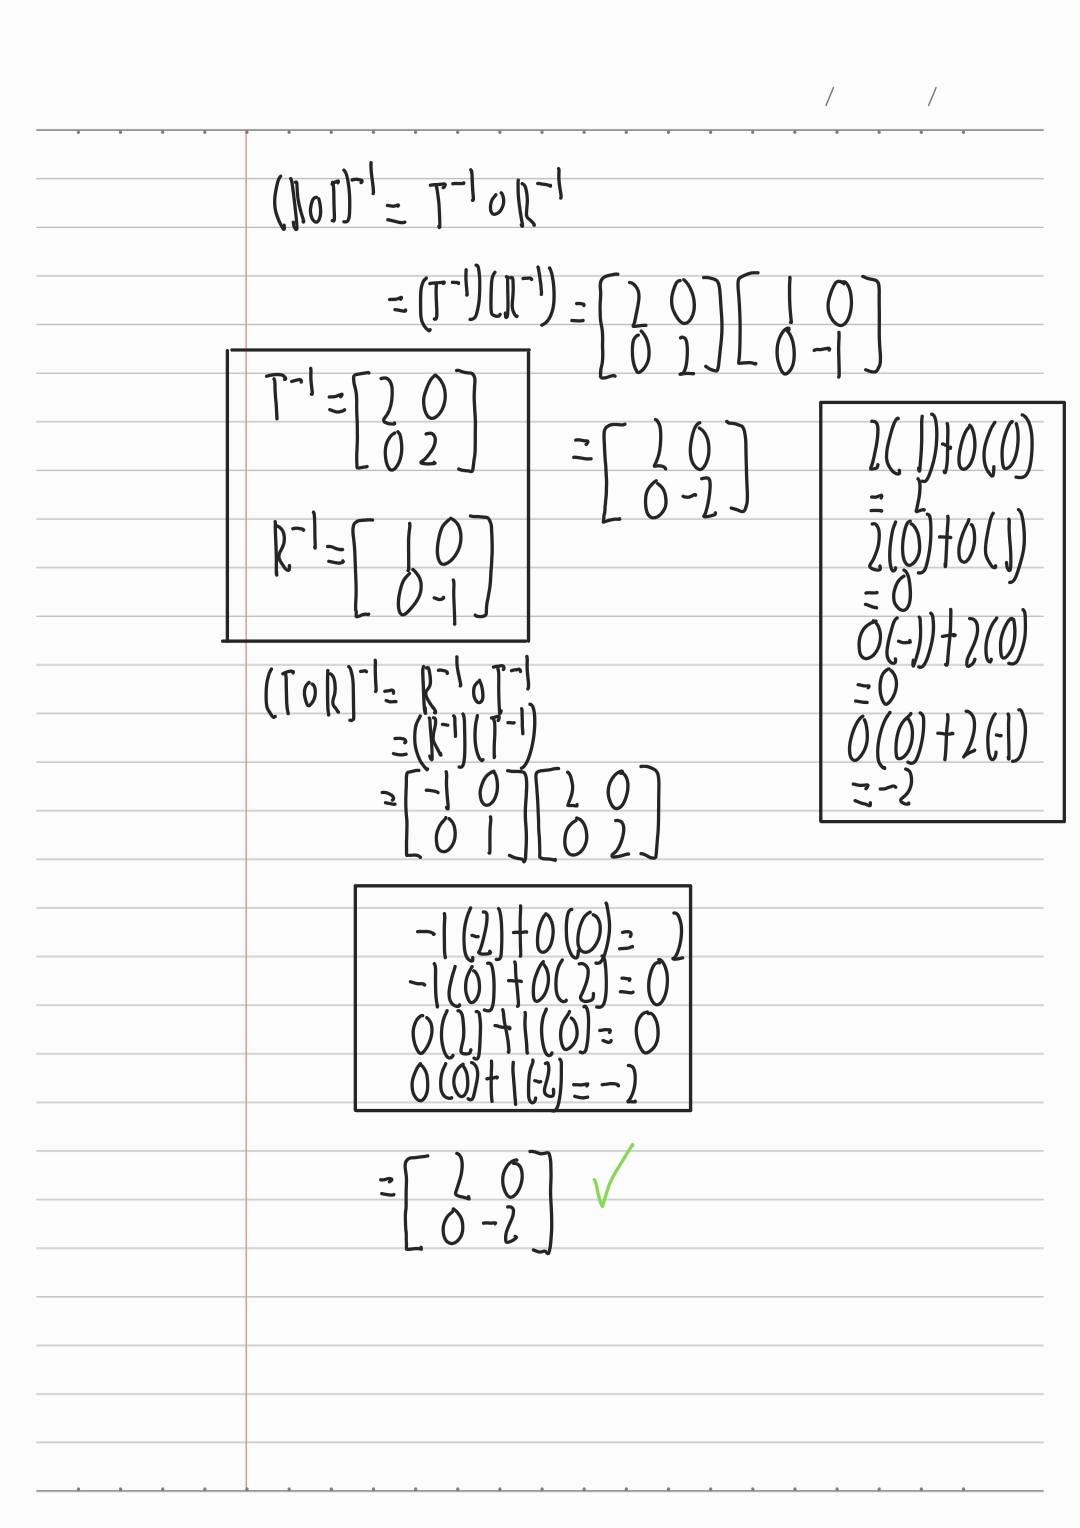 (R∘T)⁻¹ = T⁻¹ ∘ R⁻¹
= (T⁻¹)(R⁻¹) = [2 0; 0 2] [1 0; 0 -1]
T⁻¹ = [2 0; 0 2]
R⁻¹ = [1 0; 0 -1]
= [2 0; 0 -2]
2(1)+0(0)
= 2
2(0)+0(1)
= 0
0(-1)+2(0)
= 0
0(0)+2(-1)
= -2
(T∘R)⁻¹ = R⁻¹∘T⁻¹
= (R⁻¹)(T⁻¹)
= [-1 0; 0 1] [2 0; 0 2]
-1(-2)+0(0) = 2
-1(0)+0(2) = 0
0(2)+1(0) = 0
0(0)+1(-2) = -2
= [2 0; 0 -2] ✓